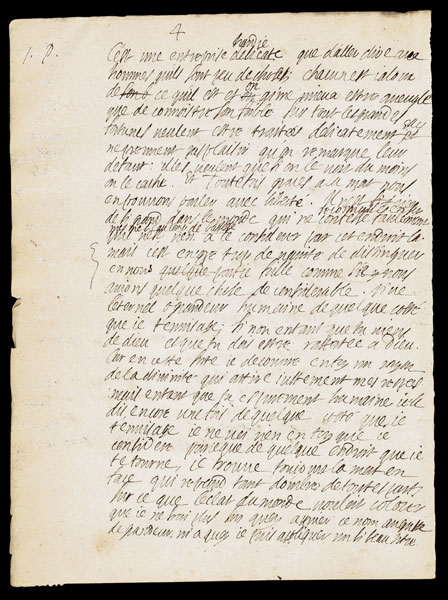 4
1. P.
hardie
C'est une entreprise delicate que d'aller dire aux
hommes qu'ils sont peu de chose; chacun est jaloux
de ce qu'il est et on aime mieux estre aveugle
que de connoistre son foible sur tout les grandes
fortunes veulent estre traitées délicatement elles
ne prennent pas plaisir qu'on remarque leur
defaut: elles veulent que si on le voit du moins
on le cache. Et toutefois graces a la mort nous
en pouvons parler avec liberté. Il n'est rien
de si grand dans le monde qui ne
qu'il n'est rien a le considerer par cet endroit la.
mais c'est encore trop de vanité de distinguer
en nous quelque partie foible comme si nous
avions quelque chose de considerable. Vive
l'eternel o grandeur humaine de quelque costé
que je t'envisage, si non entant que tu viens
de dieu et que tu dois estre rapportée a dieu.
Car en cette sorte je decouvre en toy un rayon
de la divinité qui attire justement mes respects
mais entant que tu es purement humaine je le
dis encore une fois de quelque costé que je
t'envisage je ne voi rien en toy que je
considere parce que de quelque endroit que je
te tourne, je trouve toujours la mort en
face qui repand tant d'ombres de toutes parts
sur ce que l'eclat du monde vouloit colorer
que je ne sai plus sur quoy appuyer ce nom auguste
de grandeur, ni a quoy je puis appliquer un si beau titre